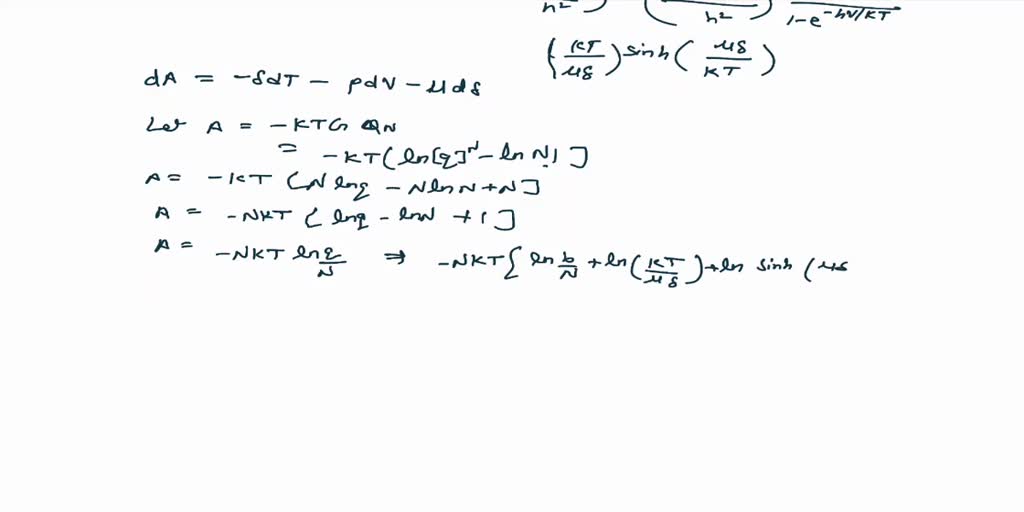 h² ) ( h² ) 1-e^{-hν/KT}
(KT/με) sinh (με/KT)
dA = -SdT - pdV - μdε
Let A = -KT ln QN
= -KT ( ln[q]^N - ln N! ]
A = -KT ( N lnq - N ln N + N ]
A = -NKT ( lnq - lnN + 1 ]
A = -NKT ln q/N ⇒ -NKT { ln b/N + ln (KT/με) + ln sinh (με